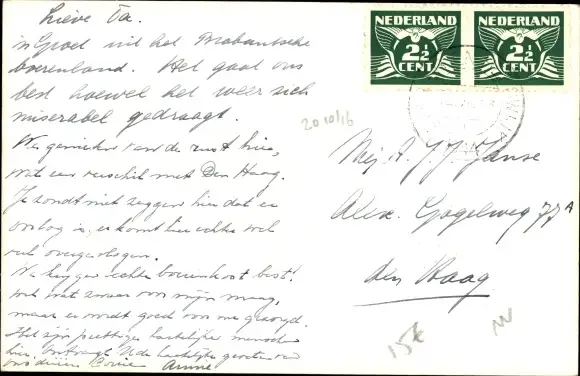 Lieve Ta.
'n Groet uit het Brabantsche
boerenland. Het gaat ons
best hoewel het weer zich
miserabel gedraagt.
We genieten van de rust hier,
wat een verschil met Den Haag.
Je zoudt niet zeggen hier dat er
oorlog is, er komt hier echter wel
veel overgevlogen.
We krijgen echte boerenkost best!
wel wat zwaar voor mijn maag,
maar er wordt goed voor me gezorgd.
Het zijn prettige hartelijke menschen
hier. Ontvangt U de hartelijke groeten van
ons drieën Corrie Annie
NEDERLAND
2½
CENT
NEDERLAND
2½
CENT
20 10/16
Mej. A. J. J. Janse
Alex. Gogelweg 77A
den Haag
15€